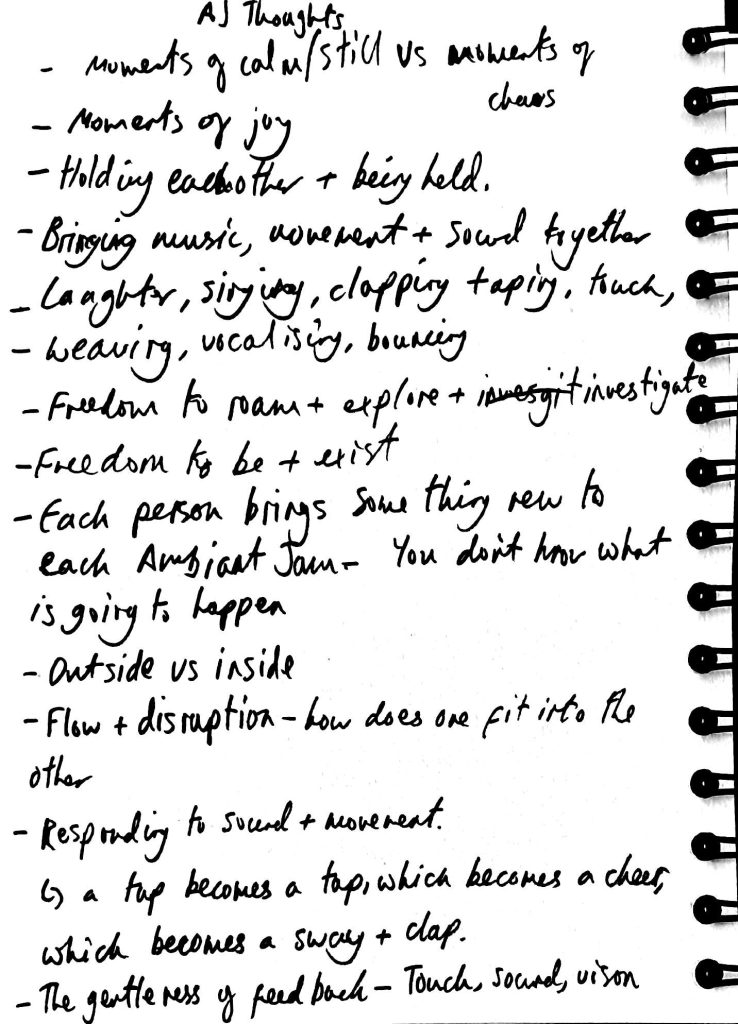 AJ Thoughts
- Moments of calm/still vs moments of
chaos
- Moments of joy
- Holding eachother + being held.
- Bringing music, movement + sound together
- Laughter, singing, clapping + taping, touch,
- weaving, vocalising, bouncing
- Freedom to roam + explore + invesgit investigate
- Freedom to be + exist
- Each person brings something new to
each Ambiant Jam - You don't know what
is going to happen
- Outside vs inside
- Flow + disruption - how does one fit into the
other
- Responding to sound + movement.
↳ a tap becomes a tap, which becomes a cheer,
which becomes a sway + clap.
- The gentleness of feedback - Touch, sound, vison